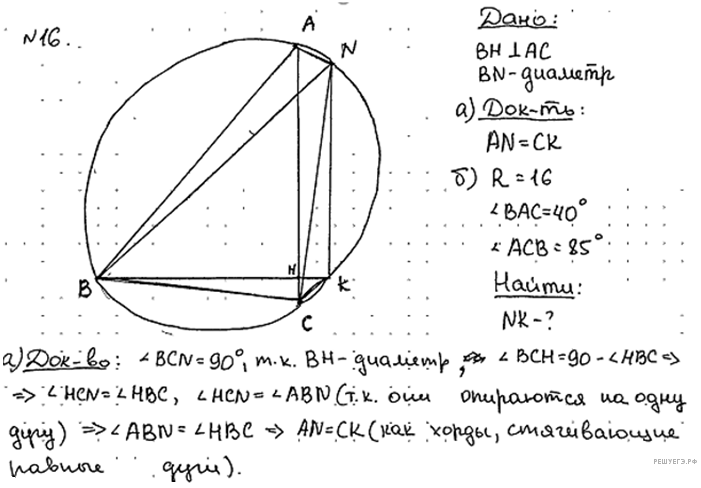 N16.
A
N
B
H
K
C
Дано:
BH⊥AC
BN-диаметр
а) Док-ть:
AN=CK
б) R=16
∠BAC=40°
∠ACB=85°
Найти:
NK-?
а) Док-во: ∠BCN=90°, т.к. BH-диаметр, ∠BCH=90-∠HBC=>
=> ∠HCN=∠HBC, ∠HCN=∠ABN (т.к. они опираются на одну
дугу) => ∠ABN=∠HBC => AN=CK (как хорды, стягивающие
равные дуги).
РЕШУЕГЭ.РФ